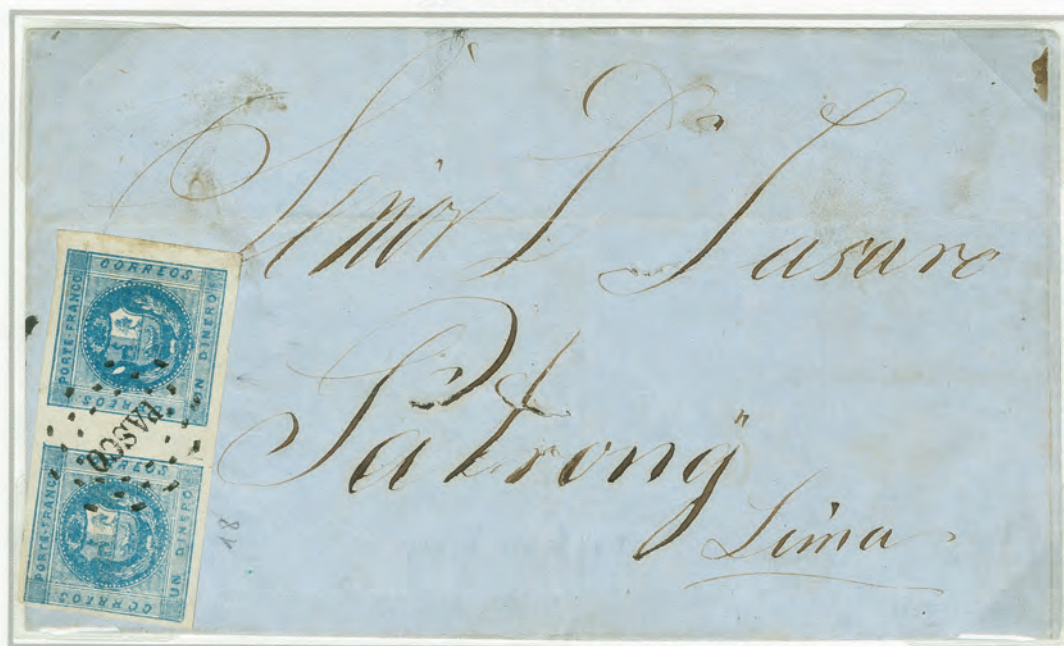 Señor D Lasaro
Patrong
Lima
CORREOS
PORTE-FRANCO
UN DINERO
CORREOS
PASCO
CORREOS
PORTE-FRANCO
UN DINERO
CORREOS
18